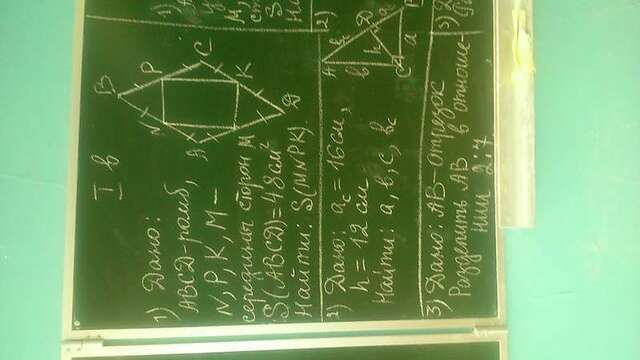 I в
1) Дано:
ABCD-ромб,
N, P, K, M -
середины сторон
S(ABCD)=48см²
Найти: S(MNPK).
B
N
P
A
C
M
K
D
2) Дано: a_c = 16см,
h = 12 см
Найти: a, b, c, b_c
A
b_c
b
D
h
a_c
C
a
3) Дано: AB-отрезок
Разделить AB в отноше-
нии 2:7
1)
2)
3)